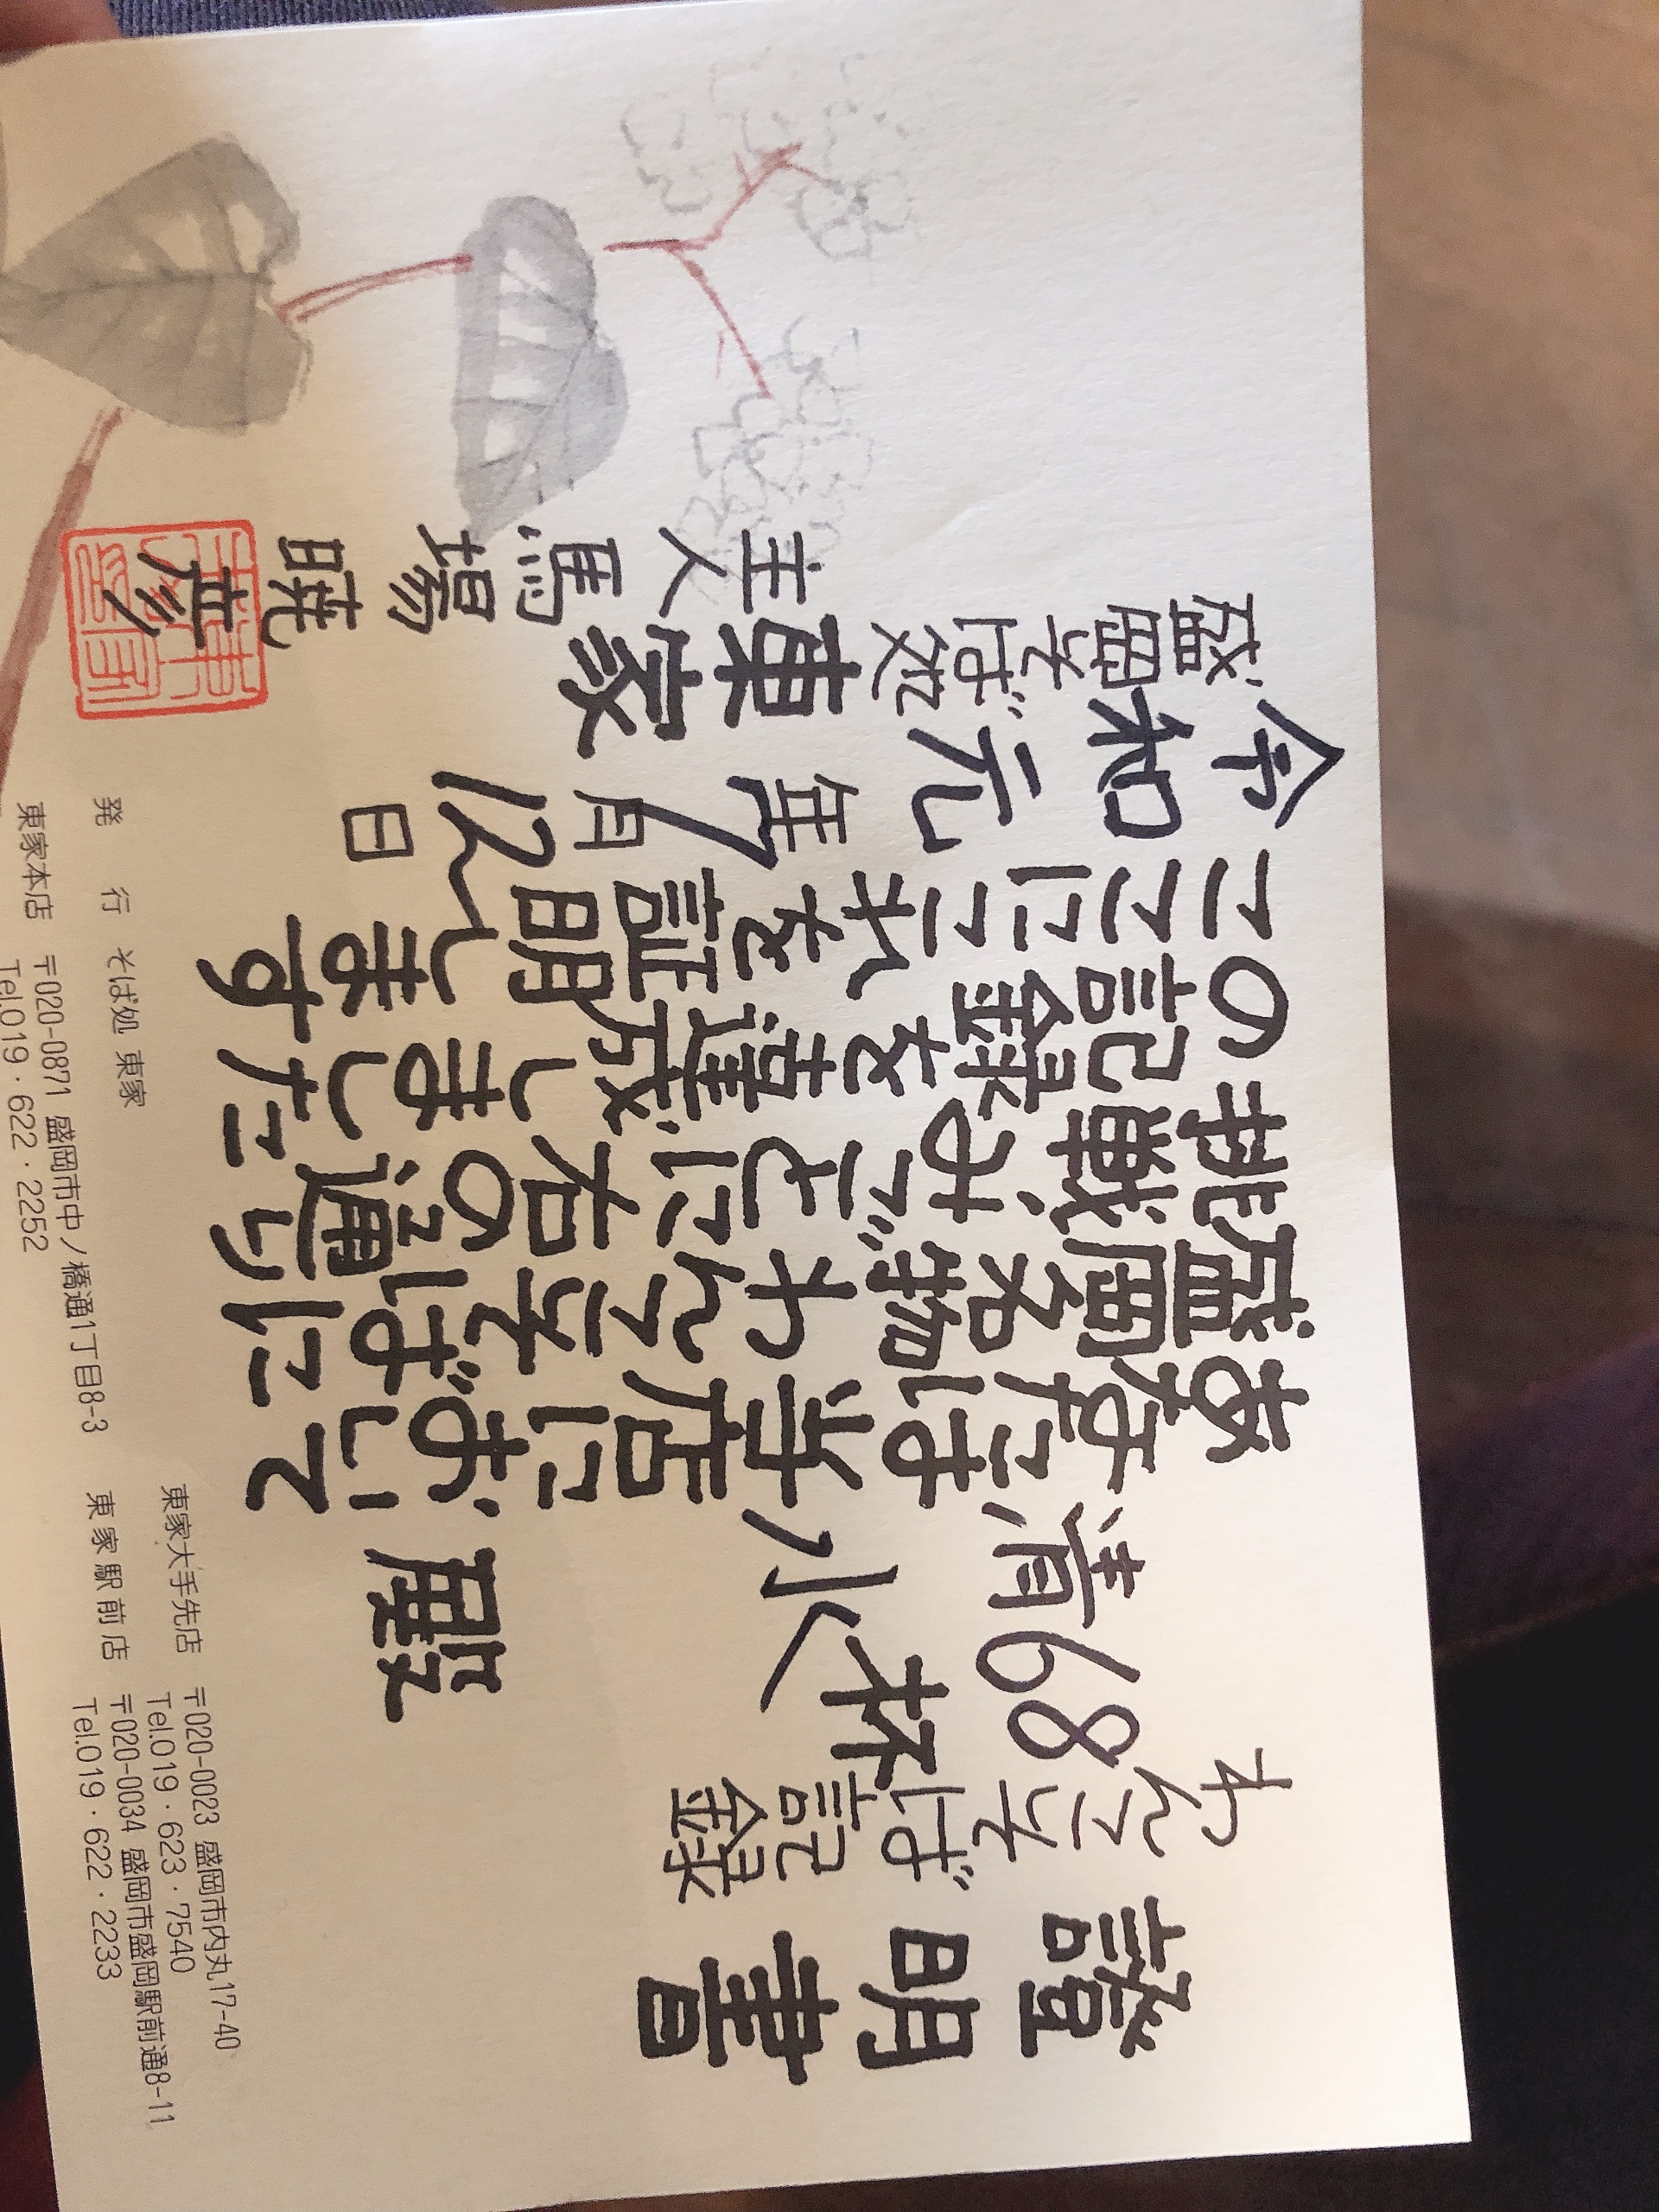 證明書
わんこそば記録
68杯
清水 殿
あなたは当店において
盛岡名物わんこそばに
挑戦、みごとに右の通り
の記録を達成しました
ここにこれを証明します
令和元年7月12日
盛岡そば処 東家
主人 馬場暁彦
東家
発 行 そば処 東家
東家本店 〒020-0871 盛岡市中ノ橋通1丁目8-3
Tel.019・622・2252
東家大手先店 〒020-0023 盛岡市内丸17-40
Tel.019・623・7540
東家駅前店 〒020-0034 盛岡市盛岡駅前通8-11
Tel.019・622・2233